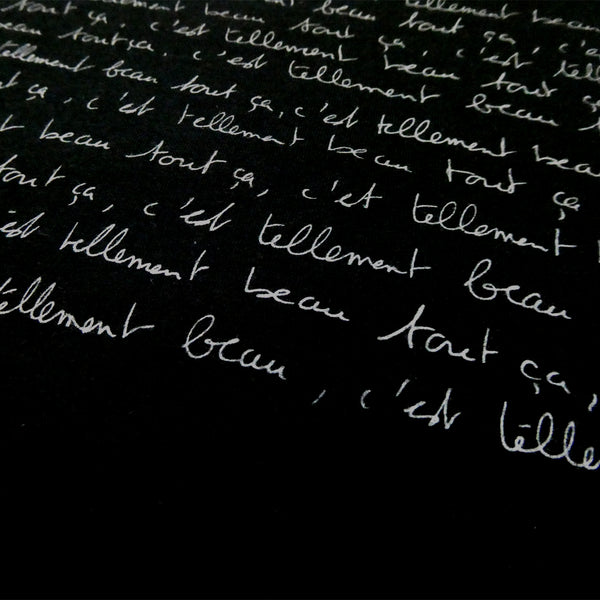 tellement beau
beau tout ça, c'e
tellement beau tout ça, c'est tell
tout ça, c'est tellement beau tout ça
beau tout ça, c'est tellement beau t
tellement beau tout ça, c'est tellement beau
t ça, c'est tellement beau tout ça
t beau tout ça, c'est tellement
tout ça, c'est tellement beau
est tellement beau tout ça,
tellement beau, c'est telle